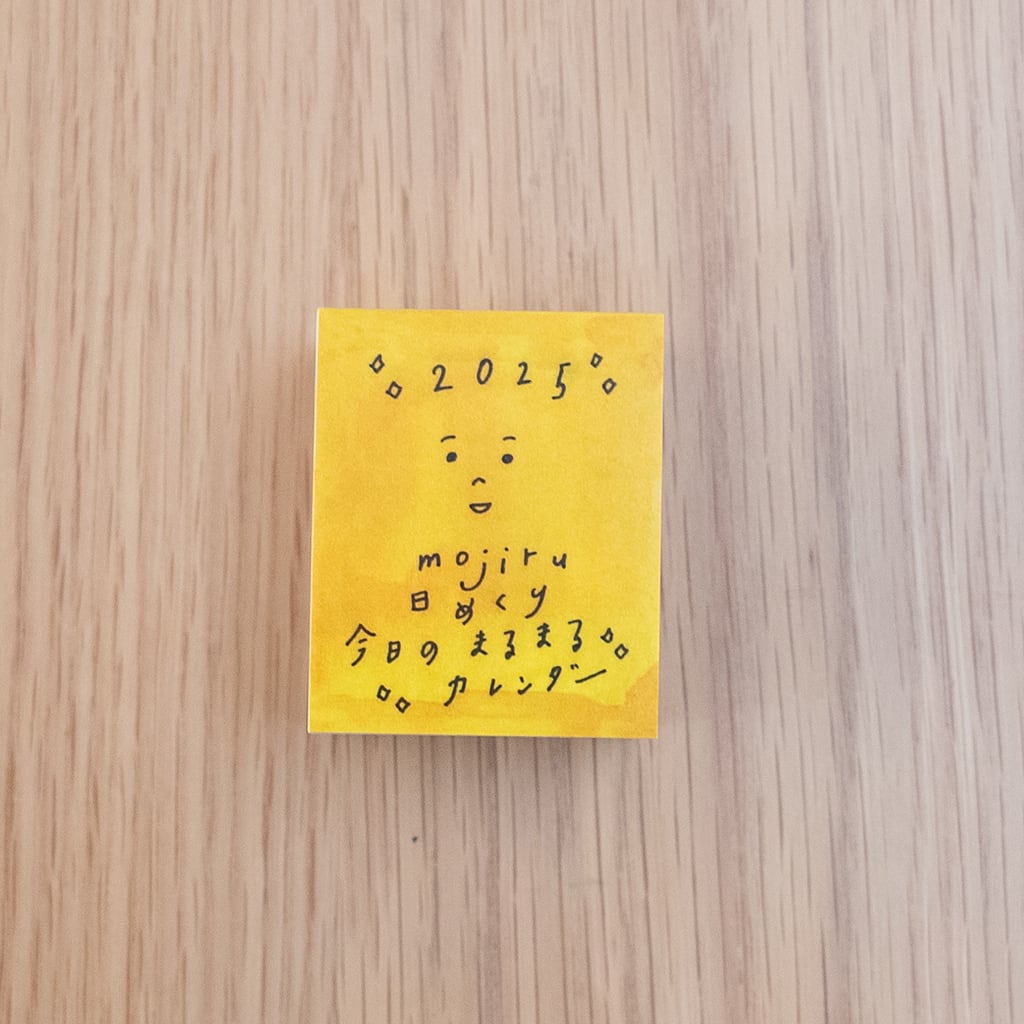 2025
mojiru
日めくり
今日のまるまる
カレンダー